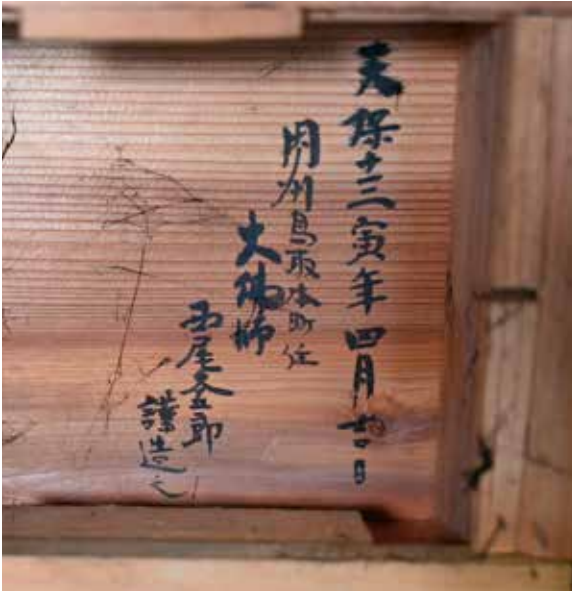 天保十三寅年四月吉日
因州鳥取本町住
大佛師
西尾文五郎
謹造之